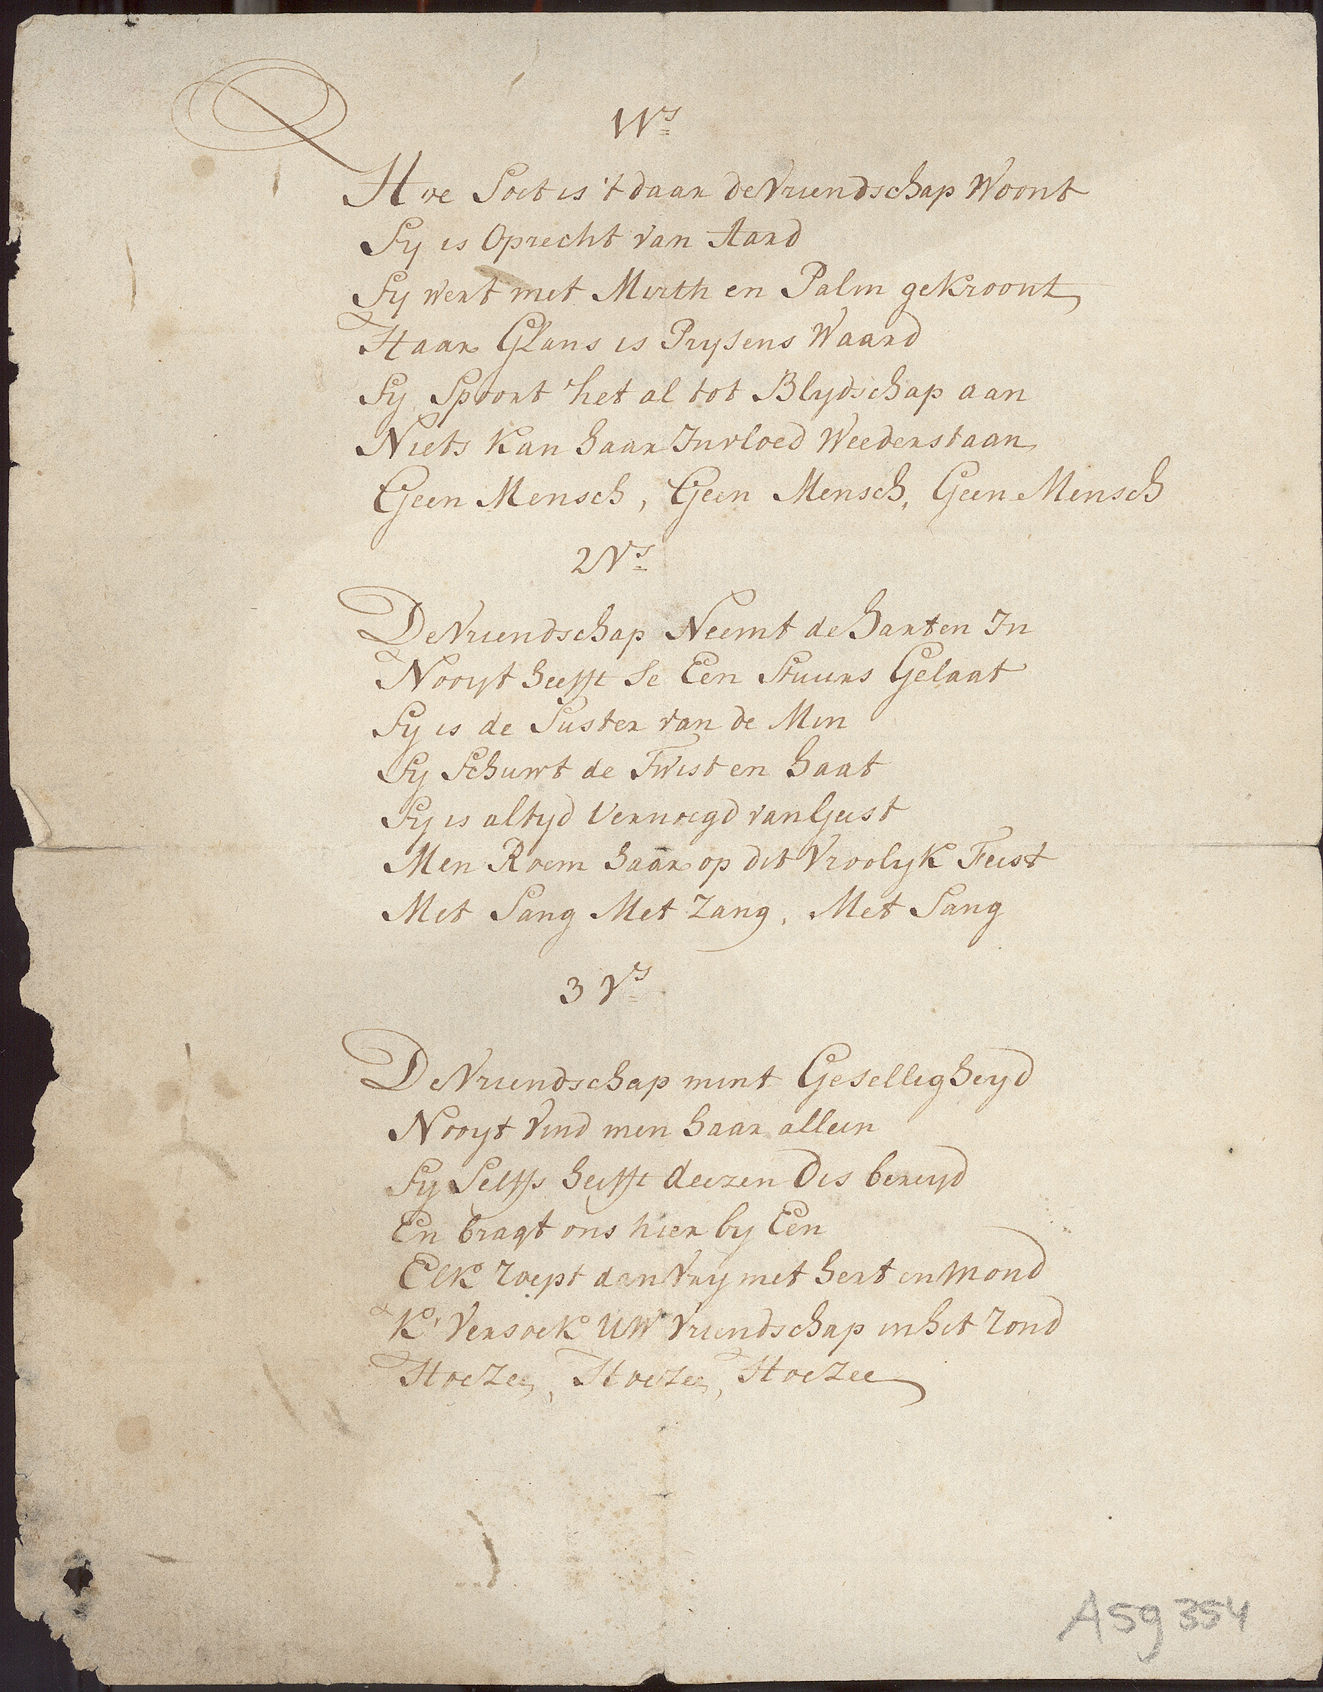 1 Vs
Hoe Soet is 't daar de Vriendschap Woont
Sy is Oprecht van Aard
Sy wert met Mirth en Palm gekroont,
Haar Glans is Prysens Waard
Sy Spoort het al tot Blydschap aan
Niets Kan haar Invloed Weederstaan
Geen Mensch, Geen Mensch, Geen Mensch
2 Vs
De Vriendschap Neemt de harten In
Nooyt heefft Se Een Stuurs Gelaat
Sy is de Suster van de Min
Sy Schuwt de Twist en haat
Sy is altyd Vernoegd van Geest
Men Roem haar op dit Vroolyk Feest
Met Sang Met Zang, Met Sang
3 Vs
De Vriendschap mint Geselligheyd
Nooyt Vind men haar alleen
Sy Selffs heefft deezen Dis bereyd
En bragt ons hier by Een
Elk roept dan Vry met hert en Mond
K' Versoek UW Vriendschap in het rond
HoeZee, HoeZee, HoeZee
A59 354